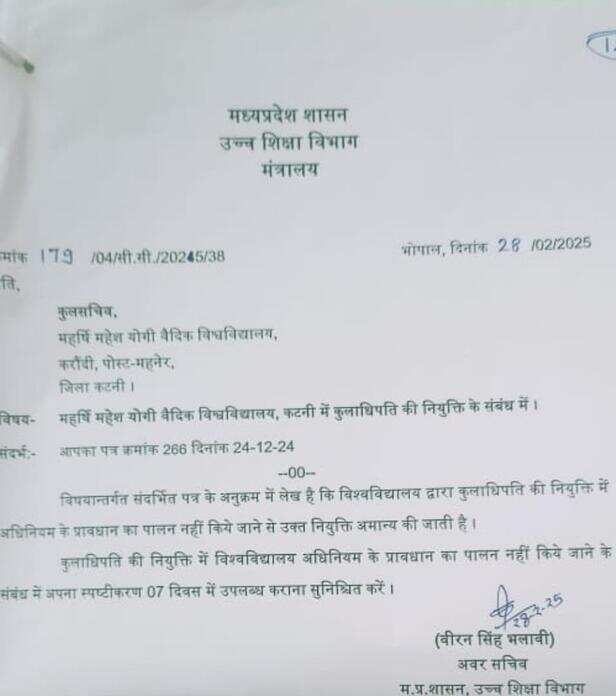 मध्यप्रदेश शासन
उच्च शिक्षा विभाग
मंत्रालय
मांक 179 /04/सी.सी./20245/38 भोपाल, दिनांक 28 /02/2025
ति,
कुलसचिव,
महर्षि महेश योगी वैदिक विश्वविद्यालय,
करौंदी, पोस्ट-महनेर,
जिला कटनी ।
विषय- महर्षि महेश योगी वैदिक विश्वविद्यालय, कटनी में कुलाधिपति की नियुक्ति के संबंध में ।
संदर्भ:- आपका पत्र क्रमांक 266 दिनांक 24-12-24
--00--
विषयान्तर्गत संदर्भित पत्र के अनुक्रम में लेख है कि विश्वविद्यालय द्वारा कुलाधिपति की नियुक्ति में
अधिनियम के प्रावधान का पालन नहीं किये जाने से उक्त नियुक्ति अमान्य की जाती है ।
कुलाधिपति की नियुक्ति में विश्वविद्यालय अधिनियम के प्रावधान का पालन नहीं किये जाने के
संबंध में अपना स्पष्टीकरण 07 दिवस में उपलब्ध कराना सुनिश्चित करें ।
28-2-25
(वीरन सिंह भलावी)
अवर सचिव
म.प्र.शासन, उच्च शिक्षा विभाग